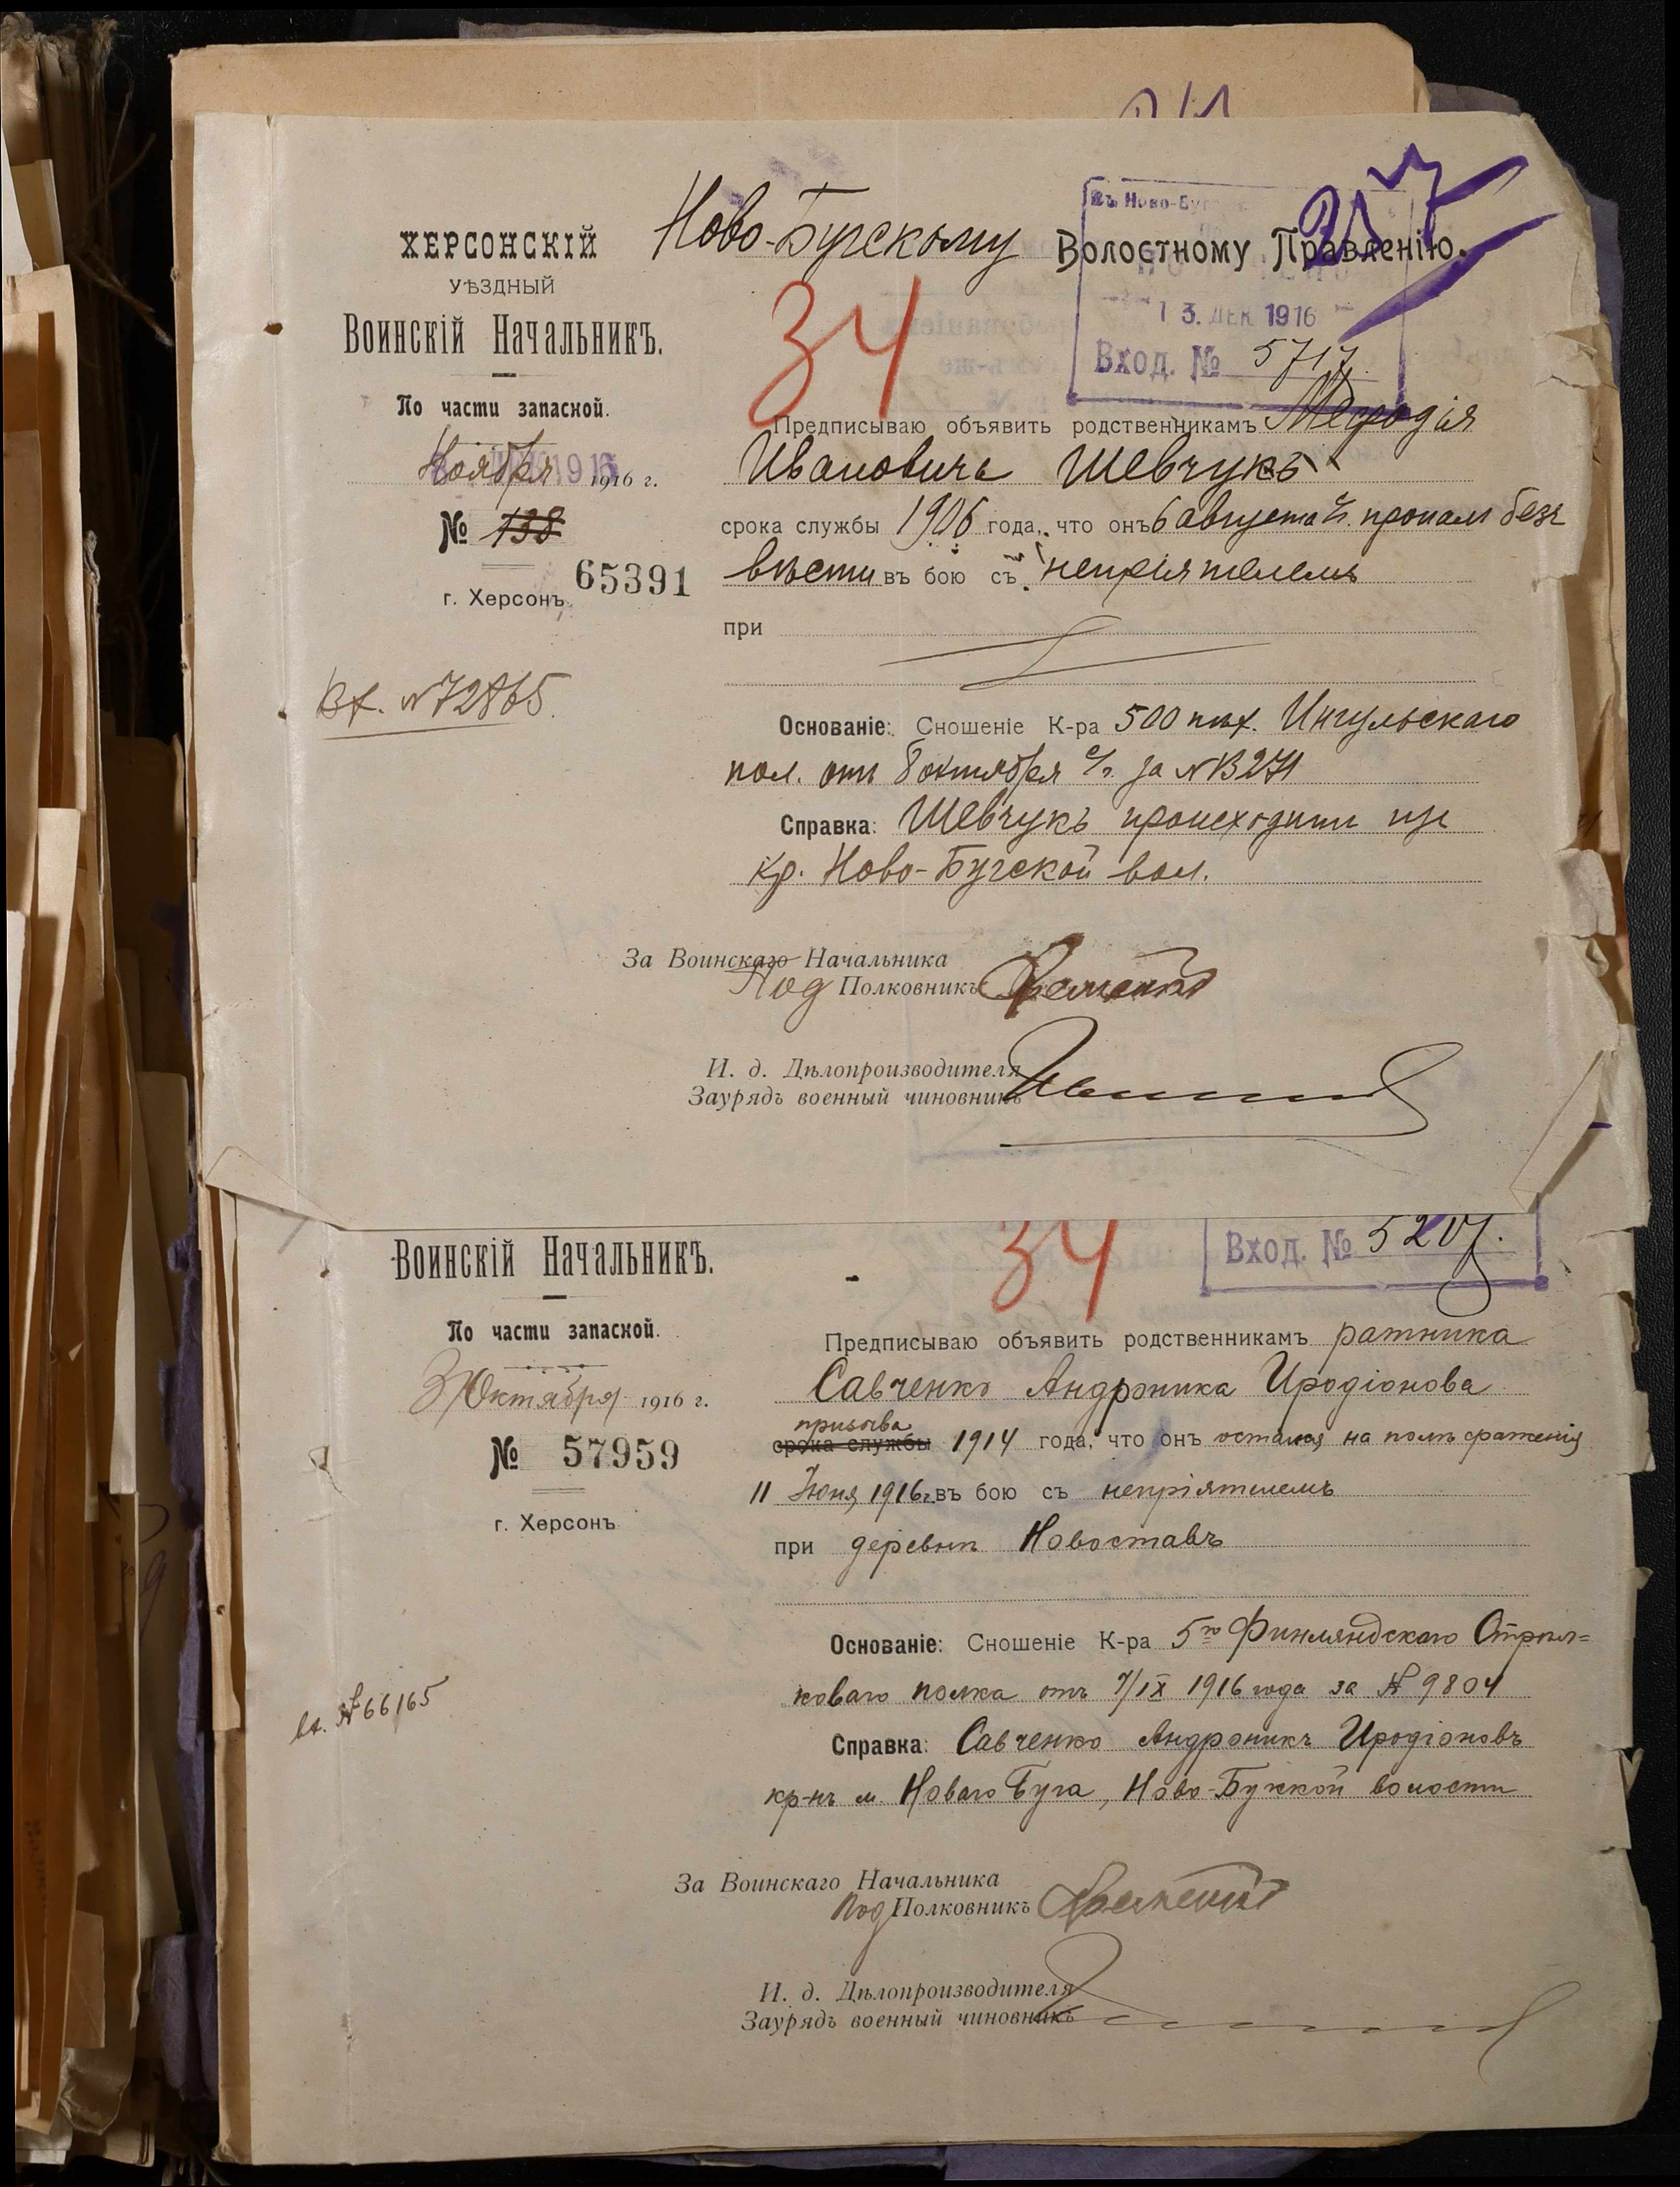 ХЕРСОНСКІЙ
УѢЗДНЫЙ
Воинскій Начальникъ.
По части запасной.
Ноября 1916 г.
№ 738
65391
г. Херсонъ.
Вх. № 72865.
Ново-Бугскому Волостному Правленію.
Въ Ново-Буг
13. ДЕК 1916
Вход. № 5717.
34
Предписываю объявить родственникамъ Мефодія
Ивановича Шевчукъ
срока службы 1906 года, что онъ 6 августа с.г. пропалъ безъ
вѣсти въ бою съ непріятелемъ
при
Основаніе: Сношеніе К-ра 500 пѣх. Ингульскаго
пол. отъ 8 октября с/г. за № 13271
Справка: Шевчукъ происходитъ изъ
кр. Ново-Бугской вол.
За Воинскаго Начальника
Под Полковникъ
И. д. Дѣлопроизводителя
Заурядъ военный чиновникъ
Воинскій Начальникъ.
По части запасной.
31 Октября 1916 г.
№ 57959
г. Херсонъ
вх. № 66165
34
Вход. № 5207.
Предписываю объявить родственникамъ ратника
Савченко Андроника Иродіонова
призыва
срока службы 1914 года, что онъ остался на полѣ сраженія
11 Іюня 1916 г. въ бою съ непріятелемъ
при деревнѣ Новоставъ
Основаніе: Сношеніе К-ра 5го Финляндскаго Стрѣл=
коваго полка отъ 7/IX 1916 года за № 9804
Справка: Савченко Андроникъ Иродіоновъ
кр-нъ м. Новаго Буга, Ново-Бугской волости
За Воинскаго Начальника
Под Полковникъ
И. д. Дѣлопроизводителя
Заурядъ военный чиновникъ